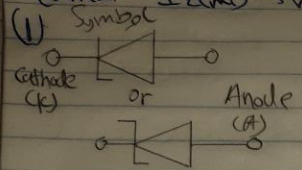 (1) Symbol
Cathode
(K)
or
Anode
(A)